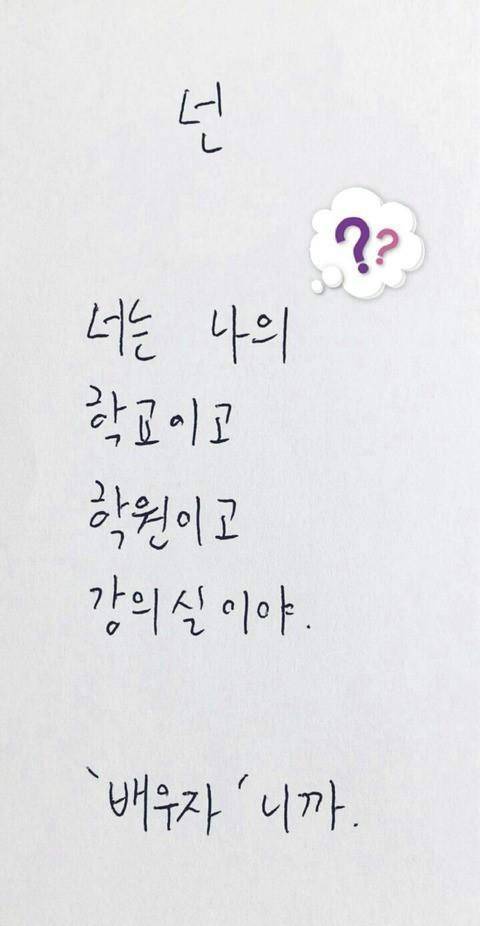 넌
??
너는 나의
학교이고
학원이고
강의실이야.
`배우자´니까.